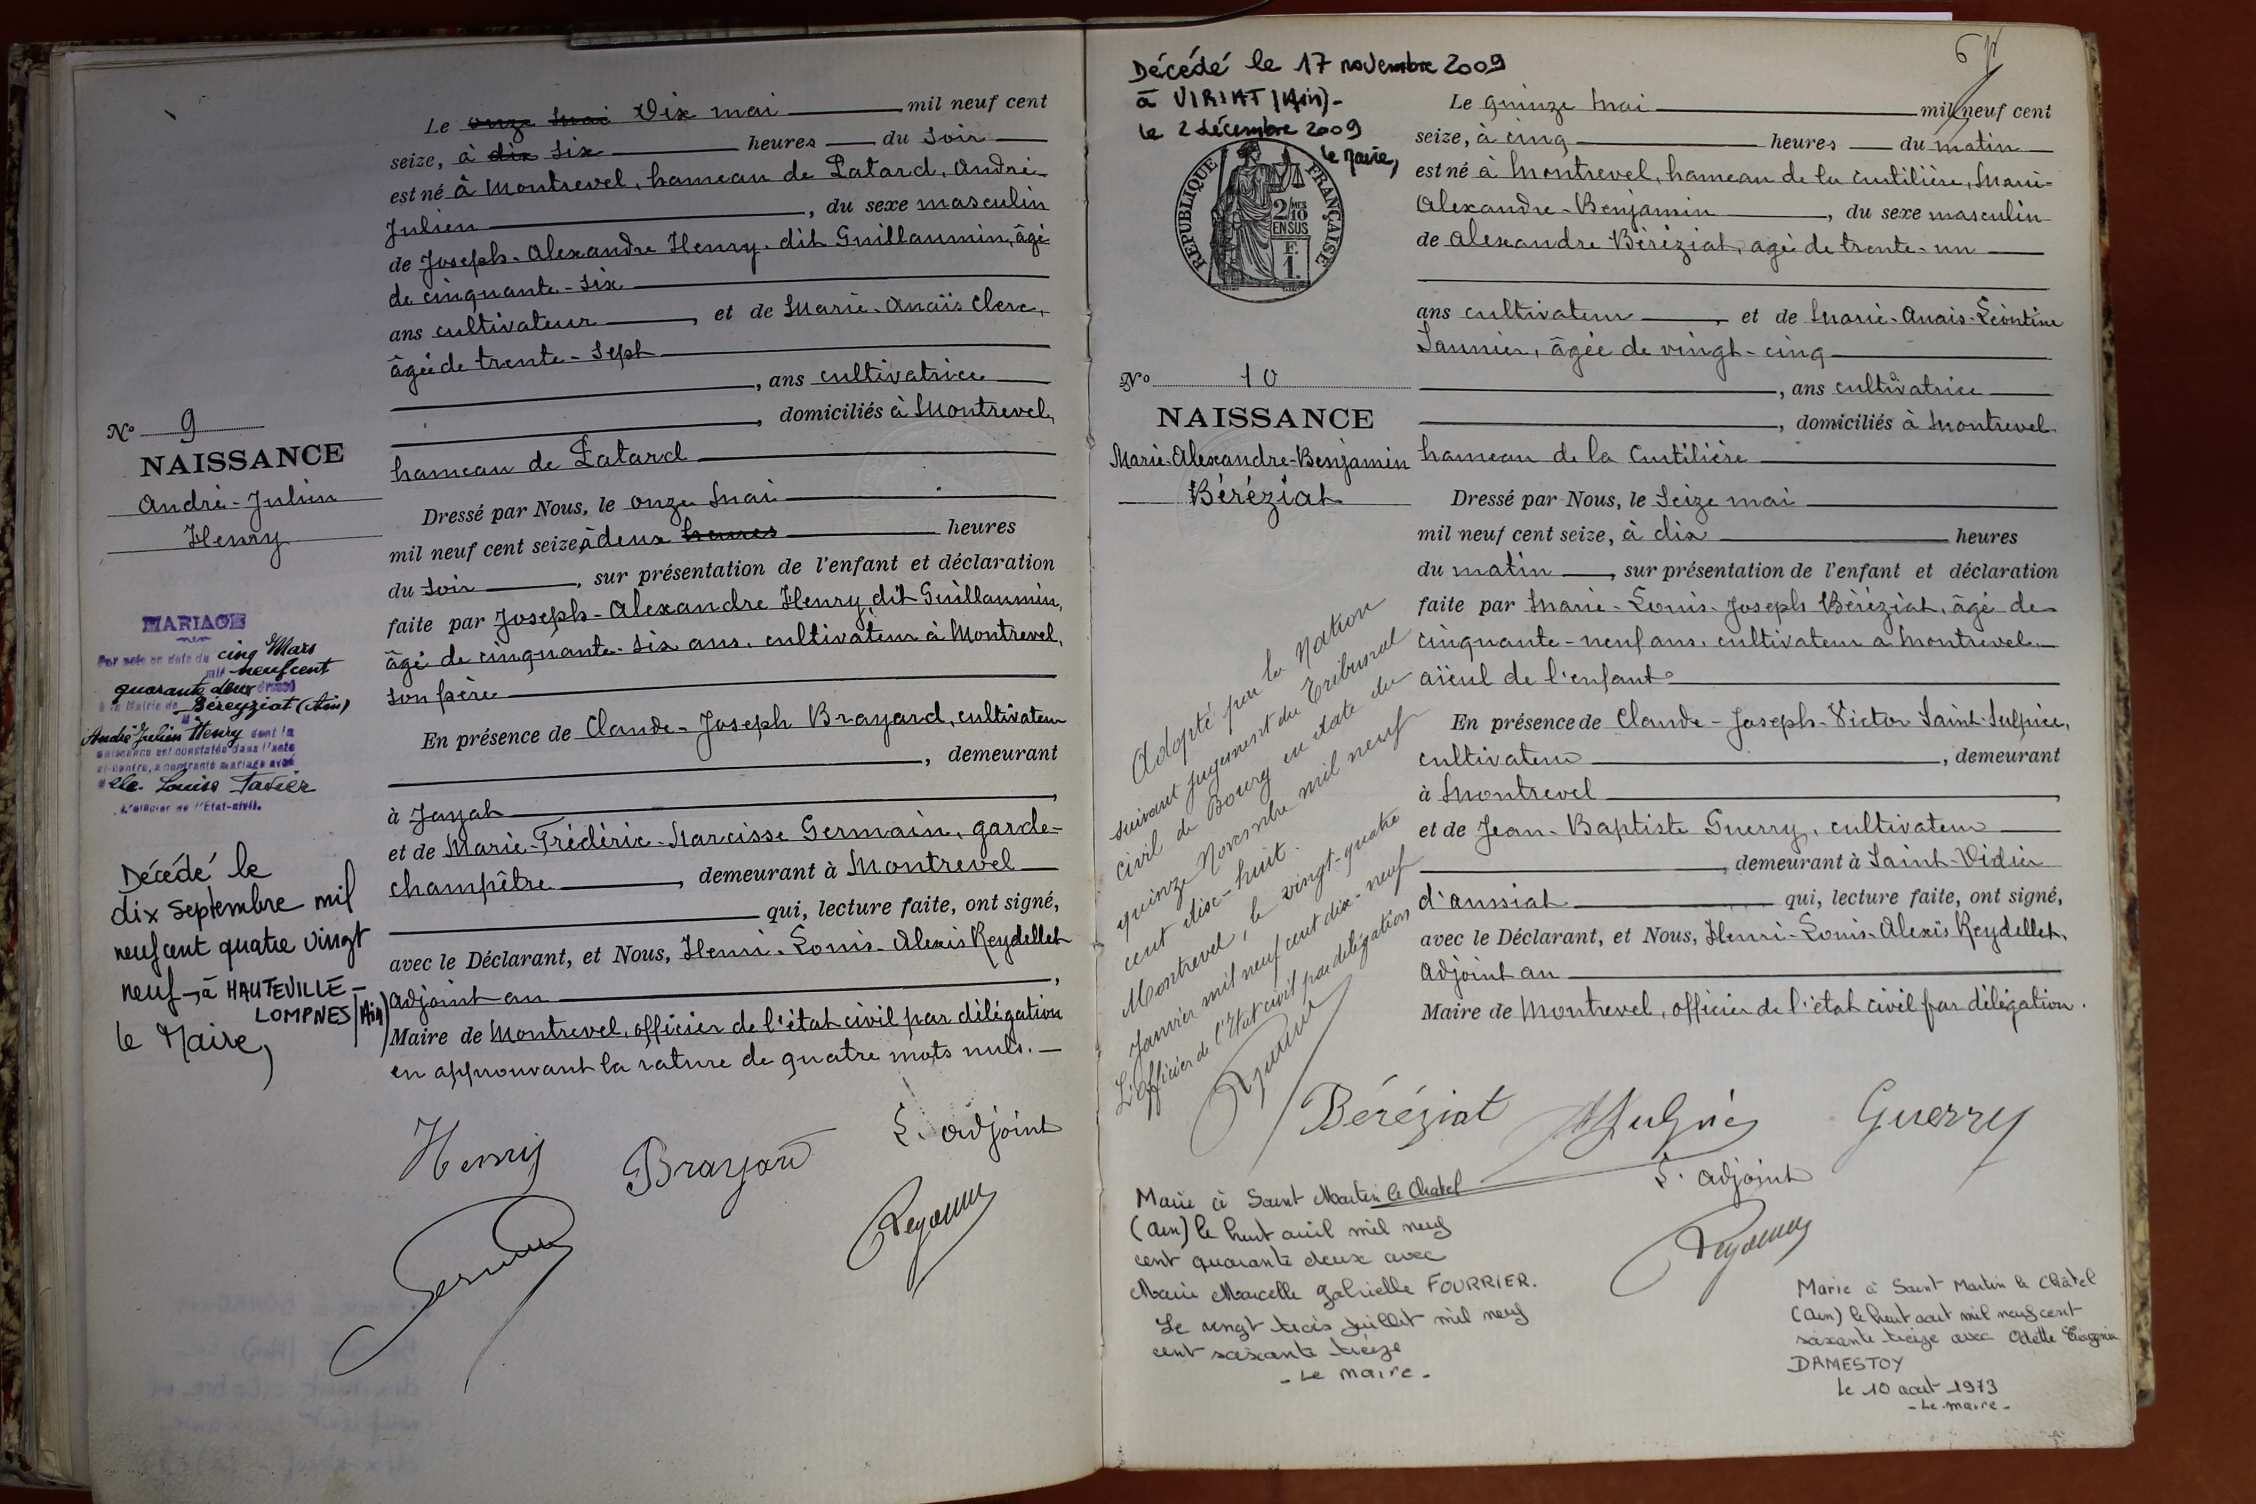 Le onze mai Dix mai mil neuf cent
seize, à dix six heures du soir
est né à Montrevel, hameau de Latard, André-
Julien, du sexe masculin
de Joseph-Alexandre Henry dit Guillaumin, âgé
de cinquante-six
ans cultivateur, et de Marie-Anaïs Clerc,
âgée de trente-sept
, ans cultivatrice
, domiciliés à Montrevel,
hameau de Latard
Dressé par Nous, le onze mai
mil neuf cent seize, à deux heures heures
du soir, sur présentation de l'enfant et déclaration
faite par Joseph-Alexandre Henry, dit Guillaumin,
âgé de cinquante-six ans, cultivateur à Montrevel,
son père
En présence de Claude-Joseph Brayard, cultivateur
, demeurant
à Jayat,
et de Marie-Frédéric-Narcisse Germain, garde-
champêtre, demeurant à Montrevel
qui, lecture faite, ont signé,
avec le Déclarant, et Nous, Henri-Louis-Alexis Reydellet
adjoint au,
Maire de Montrevel, officier de l'état civil par délégation
en approuvant la rature de quatre mots nuls.
Henry
Brayard
L'adjoint
No 9
NAISSANCE
André-Julien
Henry
MARIAGE
Par acte en date du cinq Mars
mil neuf cent
quarante deux dressé
à la Mairie de Béreyziat (Ain)
André Julien Henry dont la
naissance est constatée dans l'acte
ci-contre, a contracté mariage avec
elle. Louise Tavier
L'officier de l'Etat-civil.
Décédé le
dix septembre mil
neuf cent quatre vingt
neuf à HAUTEVILLE-
LOMPNES (Ain)
le Maire,
6
Décédé le 17 novembre 2009
à VIRIAT (Ain)-
le 2 décembre 2009
le Maire,
RÉPUBLIQUE FRANÇAISE
2/10 MES
EN SUS
F.
1.
No 10
NAISSANCE
Marie-Alexandre-Benjamin
Béréziat
Le quinze mai mil neuf cent
seize, à cinq heures du matin
est né à Montrevel, hameau de la Curtilière, Marie-
Alexandre-Benjamin, du sexe masculin
de Alexandre Béréziat, agé de trente-un
ans cultivateur, et de Marie-Anais-Léontine
Saunier, âgée de vingt-cinq
, ans cultivatrice
, domiciliés à Montrevel
hameau de la Curtilière
Dressé par Nous, le seize mai
mil neuf cent seize, à dix heures
du matin, sur présentation de l'enfant et déclaration
faite par Marie-Louis-Joseph Béréziat, âgé de
cinquante-neuf ans, cultivateur a Montrevel
aïeul de l'enfant
En présence de Claude-Joseph-Victor Saint-Sulpice,
cultivateur, demeurant
à Montrevel,
et de Jean-Baptiste Guerry, cultivateur
, demeurant à Saint-Didier
d'aussiat qui, lecture faite, ont signé,
avec le Déclarant, et Nous, Henri-Louis-Alexis Reydellet,
adjoint au
Maire de Montrevel, officier de l'état civil par délégation.
Adopté par la Nation
suivant jugement du Tribunal
civil de Bourg en date du
quinze Novembre mil neuf
cent dix-huit.
Montrevel, le vingt-quatre
Janvier mil neuf cent dix-neuf
L'Officier de l'Etat civil par délégation
Béréziat
Guerry
L'adjoint
Marié à Saint Martin le Chatel
(Ain) le huit avril mil neuf
cent quarante deux avec
Marie Marcelle Gabrielle FOURRIER.
Le vingt trois juillet mil neuf
cent soixante treize
- Le maire -
Marié à Saint Martin le Châtel
(Ain) le huit aout mil neuf cent
soixante treize avec Odette
DAMESTOY
le 10 aout 1973
- Le maire -